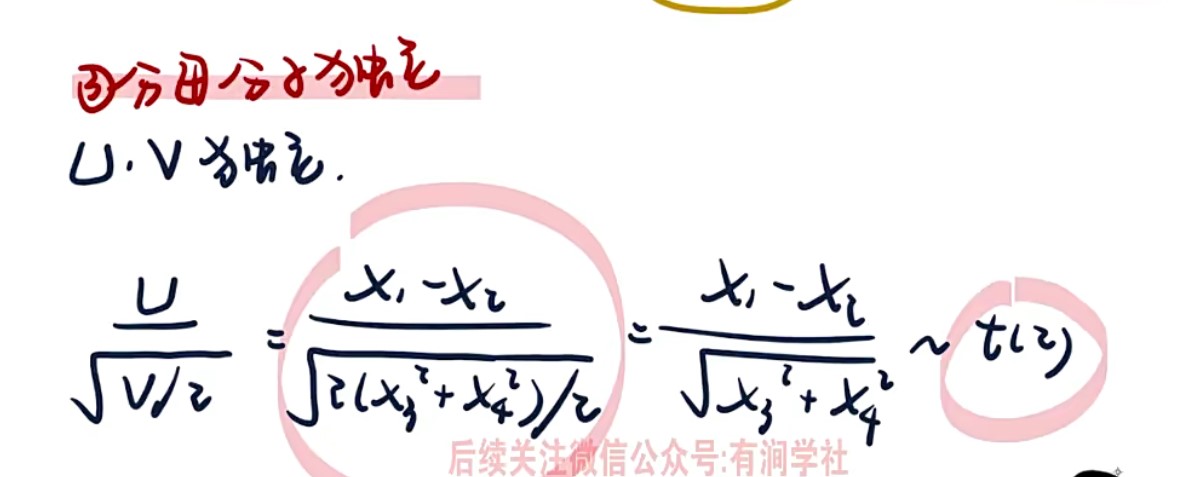 ③分母分子为独立
U.V为独立.
U/√(V/2) = (X₁-X₂)/√(2(X₃²+X₄²)/2) = (X₁-X₂)/√(X₃²+X₄²) ~ t(2)
后续关注微信公众号:有涧学社